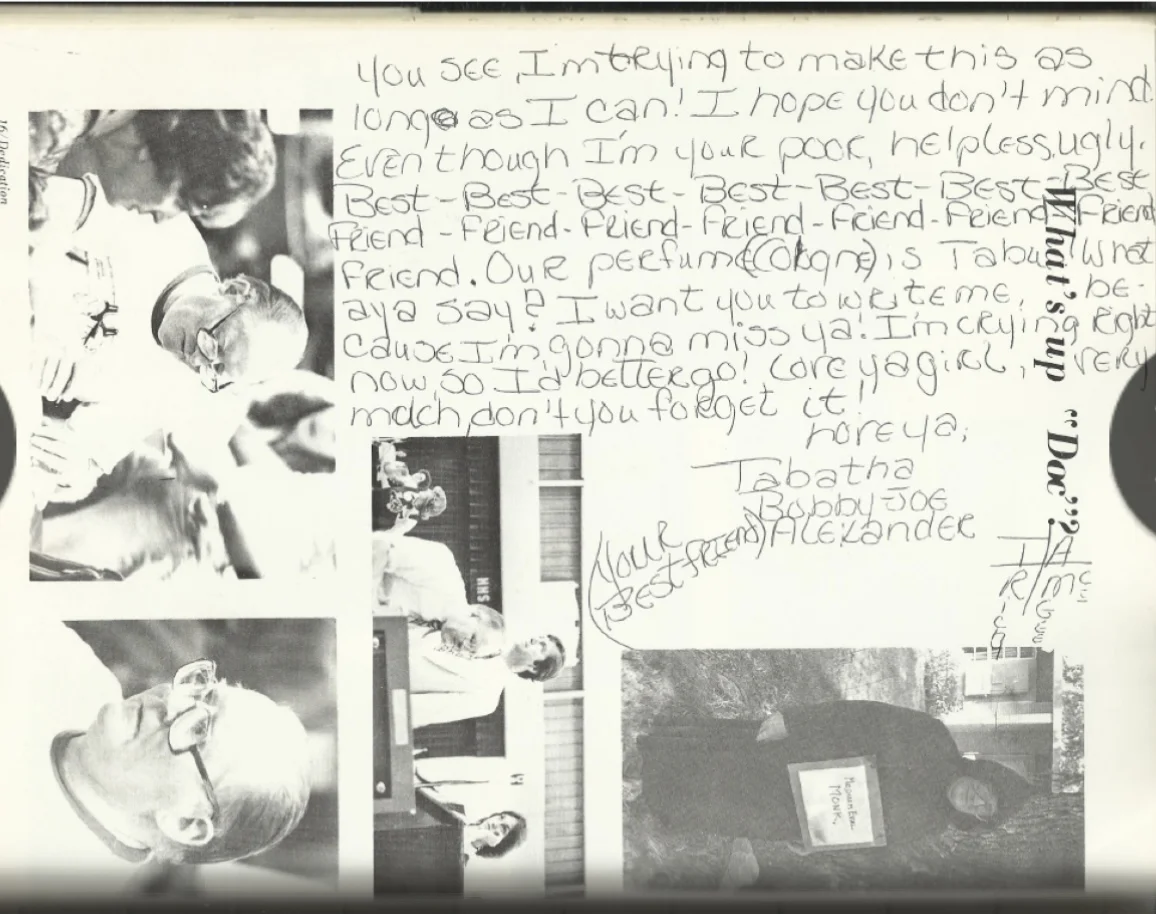 you see, I'm trying to make this as
long as I can! I hope you don't mind.
Even though I'm your poor, helpless, ugly.
Best-Best-Best-Best-Best-Best-Best
Friend-Friend-Friend-Friend-Friend-Friend-Friend
Friend. Our perfume is Tabu! What
aya say? I want you to write me, be-
cause I'm gonna miss ya! I'm crying right
now, so I'd better go! Love ya girl, very
much, don't you forget it!
Love ya,
Tabatha
Bobby Joe
Alexander
(Your
Best friend)
What's up "Doc"?
16/Dedication
MONK.
HHS